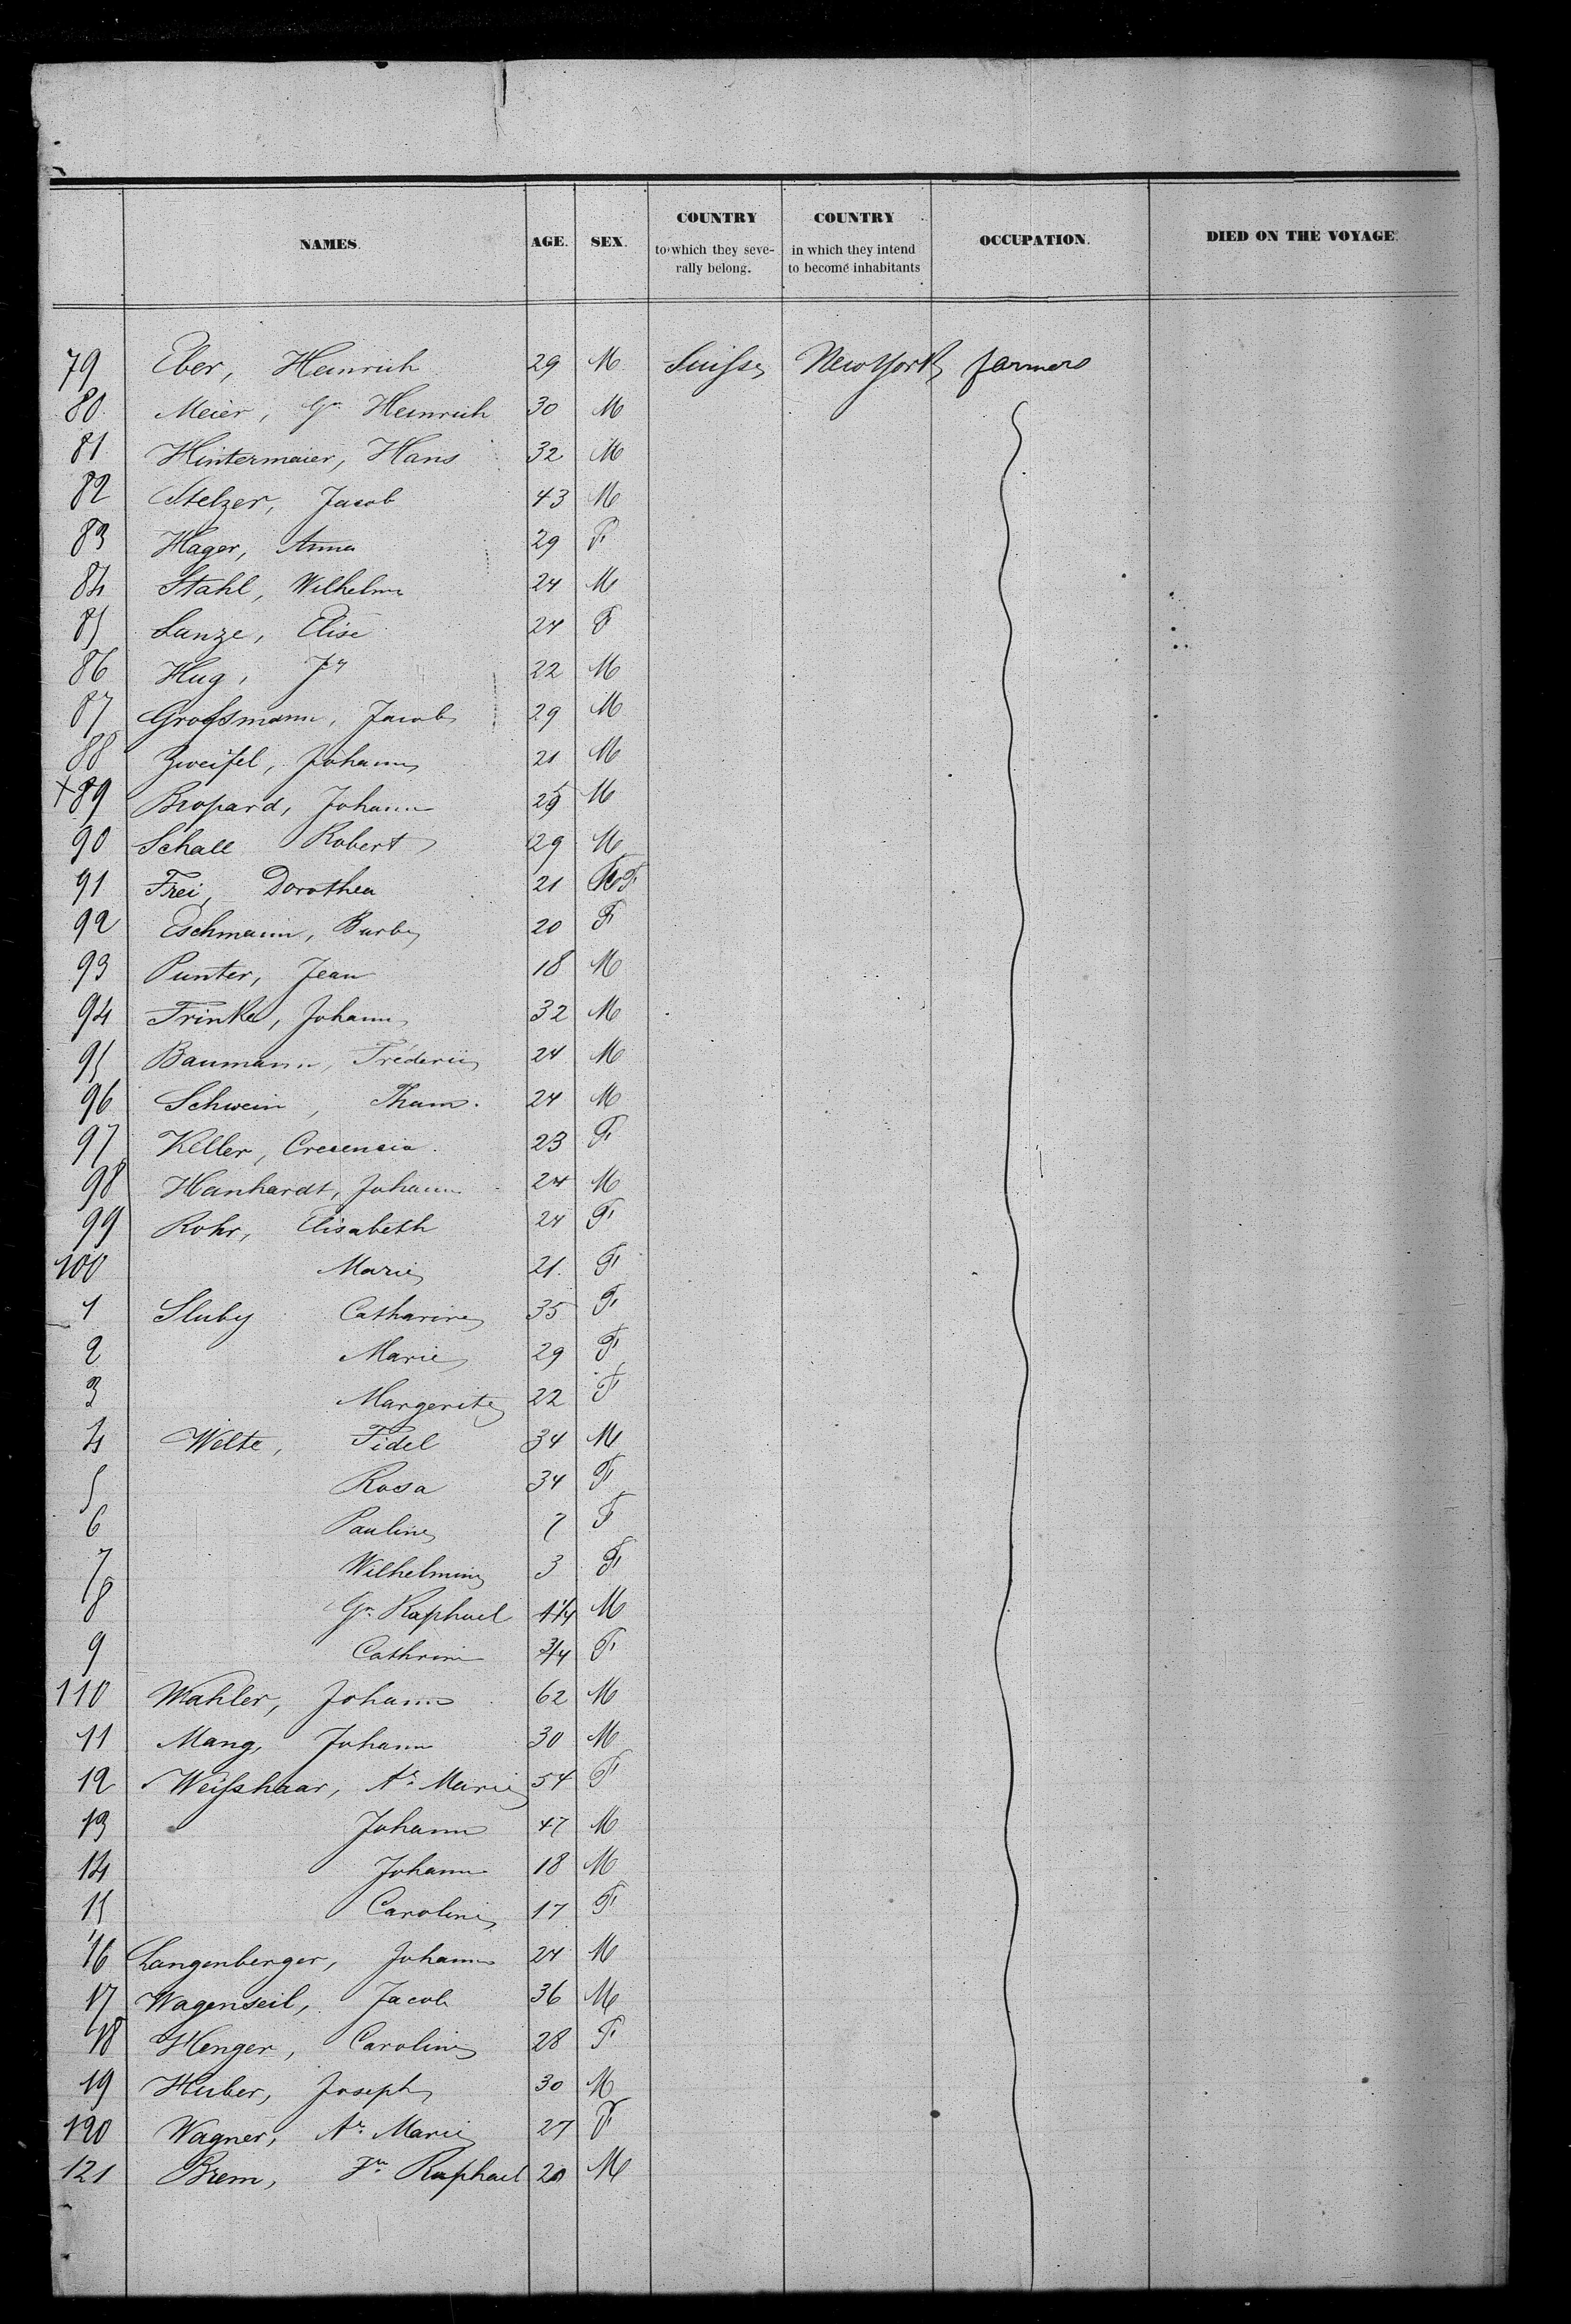 NAMES. AGE. SEX. COUNTRY to which they severally belong. COUNTRY in which they intend to become inhabitants OCCUPATION. DIED ON THE VOYAGE.
79 Eber, Heinrich 29 M Suisse New York farmers
80 Meier, Gr. Heinrich 30 M
81 Hintermaier, Hans 32 M
82 Stelzer, Jacob 43 M
83 Hager, Anna 29 F
84 Stahl, Wilhelm 24 M
85 Lanze, Elise 24 F
86 Hug, 22 M
87 Großmann, Jacob 29 M
88 Zweifel, Johann 21 M
X 89 Johann M
90 Schall Robert 29 M
91 Frei, Dorothea 21 F
92 Eschmann, Barb 20 F
93 Punter, Jean 18 M
94 Trinkle, Johann 32 M
95 Baumann, Fréderic 24 M
96 Schwein, 24 M
97 Keller, Cresensia 23 F
98 Hanhardt, Johann 24 M
99 Rohr, Elisabeth 24 F
100 Marie 21 F
1 Sluby Catharine 35 F
2 Marie 29 F
3 Margerite 22 F
4 Welte, Fidel 34 M
5 Rosa 34 F
6 Pauline 7 F
7 Wilhelmine 3 F
8 Gr. Raphael 1 1/4 M
9 Cathrine 3/4 F
110 Wahler, Johann 62 M
11 Mang, Johann 30 M
12 Weißhaar, Ar. Marie 54 F
13 Johann 47 M
14 Johann 18 M
15 Caroline 17 F
16 Langenberger, Johann 24 M
17 Wagenseil, Jacob 36 M
18 Henger, Caroline 28 F
19 Huber, Joseph 30 M
120 Wagner, Ar. Marie 27 F
121 Brem, Raphael 20 M